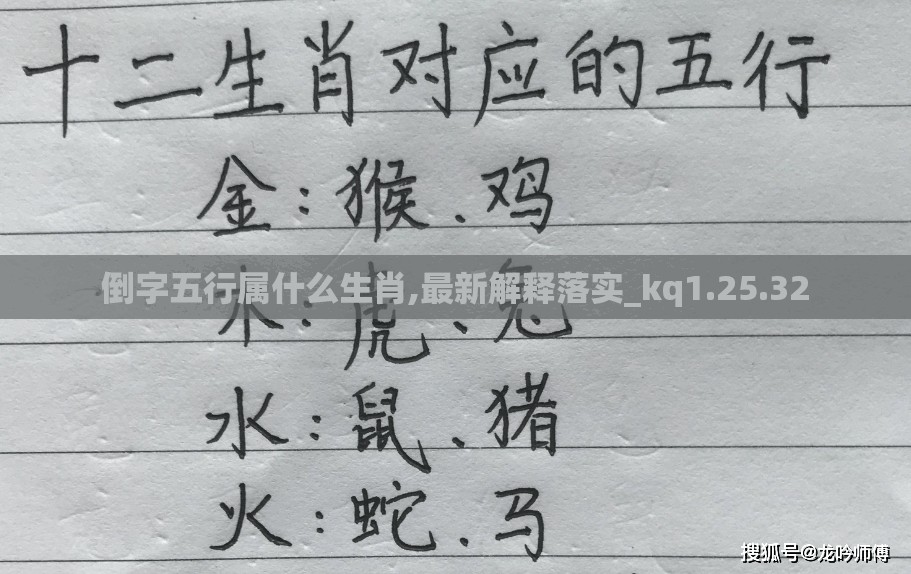 十二生肖对应的五行
金：猴、鸡
倒字五行属什么生肖,最新解释落实_kq1.25.32
木：虎、兔
水：鼠、猪
火：蛇、马
搜狐号@龙吟师傅